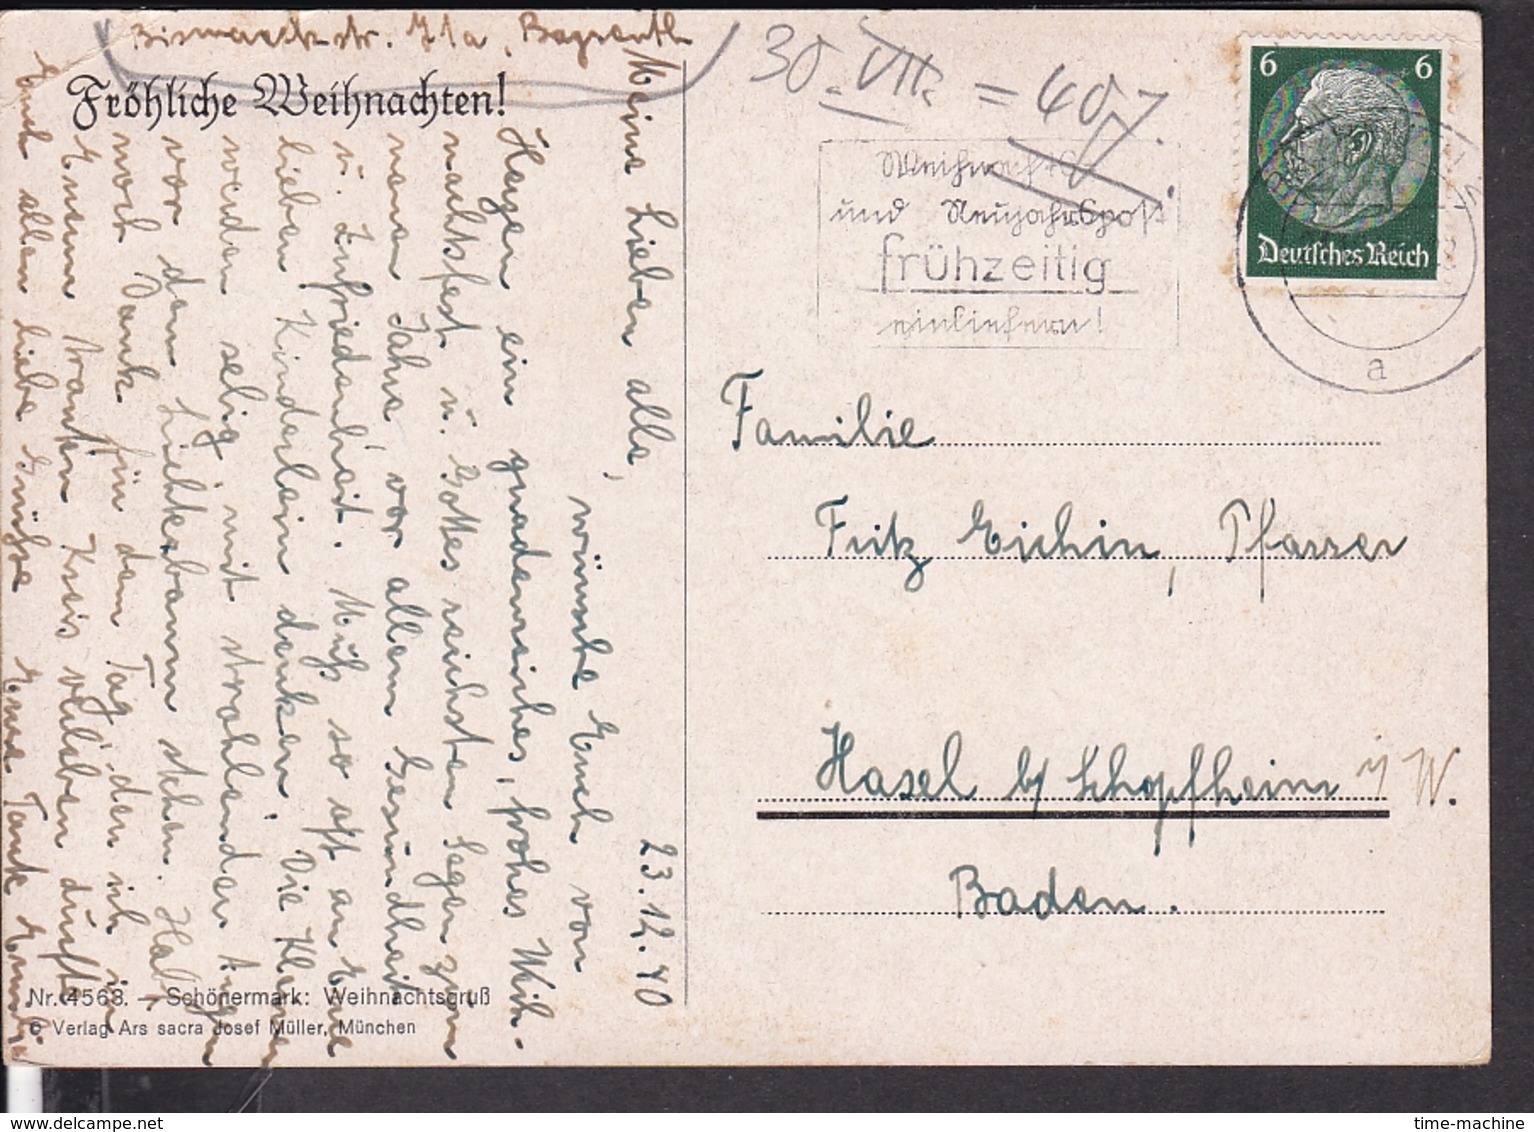 Bismarckstr. 71a, Bayreuth
Fröhliche Weihnachten!
23.12.40
Meine Lieben alle,
wünsche Euch von
Herzen ein gnadenreiches, frohes Weih-
nachtsfest u. Gottes reichsten Segen zum
neuen Jahre vor allem Gesundheit
u. Zufriedenheit. Muß so oft an Eure
lieben Kinderlein denken. Die Kleinen
werden selig mit strahlenden Augen
vor dem Lichterbaum stehen.
noch Dank für den Tag, den ich in
Eurem trauten Kreis verleben durfte
Euch allen liebe Grüße Eure Tante
Nr. 4563. – Schönermark: Weihnachtsgruß
© Verlag Ars sacra Josef Müller, München
30. VII. = 40
Weihnachts
und Neujahrspost
frühzeitig
einliefern!
6 6
Deutsches Reich
a
Familie
Fritz Eichin, Pfarrer
Hasel b/ Schopfheim i/W.
Baden.
time-machine